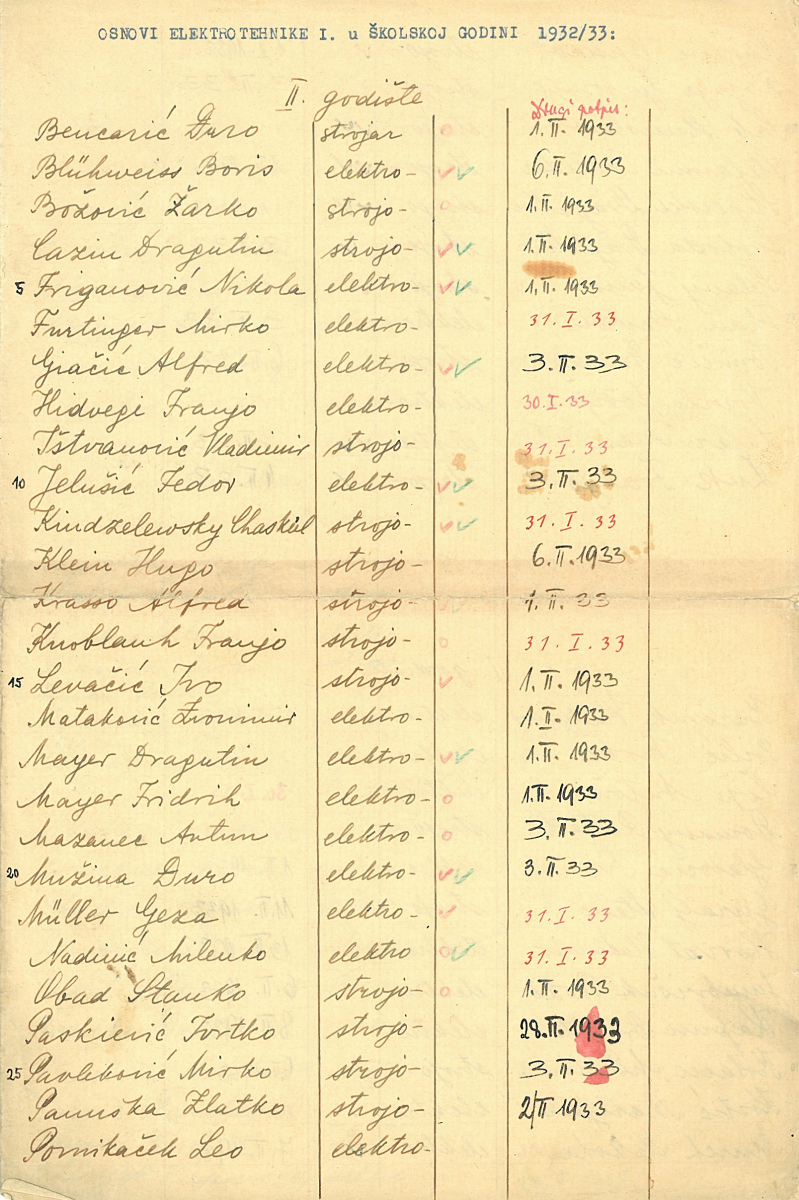 OSNOVI ELEKTROTEHNIKE I. u ŠKOLSKOJ GODINI 1932/33:
II. godište
Drugi potpis:
Bencarić Đuro strojar o 1.II.1933
Blühweiss Boris elektro- 6.II.1933
Božović Žarko strojo- o 1.II.1933
Cazin Dragutin strojo- 1.II.1933
5 Friganović Nikola elektro- 1.II.1933
Furtinger Mirko elektro- 31.I.33
Giačić Alfred elektro- 3.II.33
Hidvegi Franjo elektro- 30.I.33
Ištvanović Vladimir strojo- 31.I.33
10 Jelušić Fedor elektro- 3.II.33
Kindzelewsky Chaskel strojo- 31.I.33
Klein Hugo strojo- 6.II.1933
Krasso Alfred strojo- 1.II.33
Knoblauh Franjo strojo- o 31.I.33
15 Levačić Ivo strojo- 1.II.1933
Mataković Zvonimir elektro- 1.II.1933
Mayer Dragutin elektro- 1.II.1933
Mayer Fridrih elektro- o 1.II.1933
Mazanec Antun elektro- o 3.II.33
20 Mužina Đuro elektro- 3.II.33
Müller Geza elektro- 31.I.33
Nadinić Milenko elektro o 31.I.33
Obad Stanko strojo- o 1.II.1933
Paskiević Tvrtko strojo- 28.II.1933
25 Pavleković Mirko strojo- 3.II.33
Panuška Zlatko strojo- 2/II 1933
Pornikaček Leo elektro-